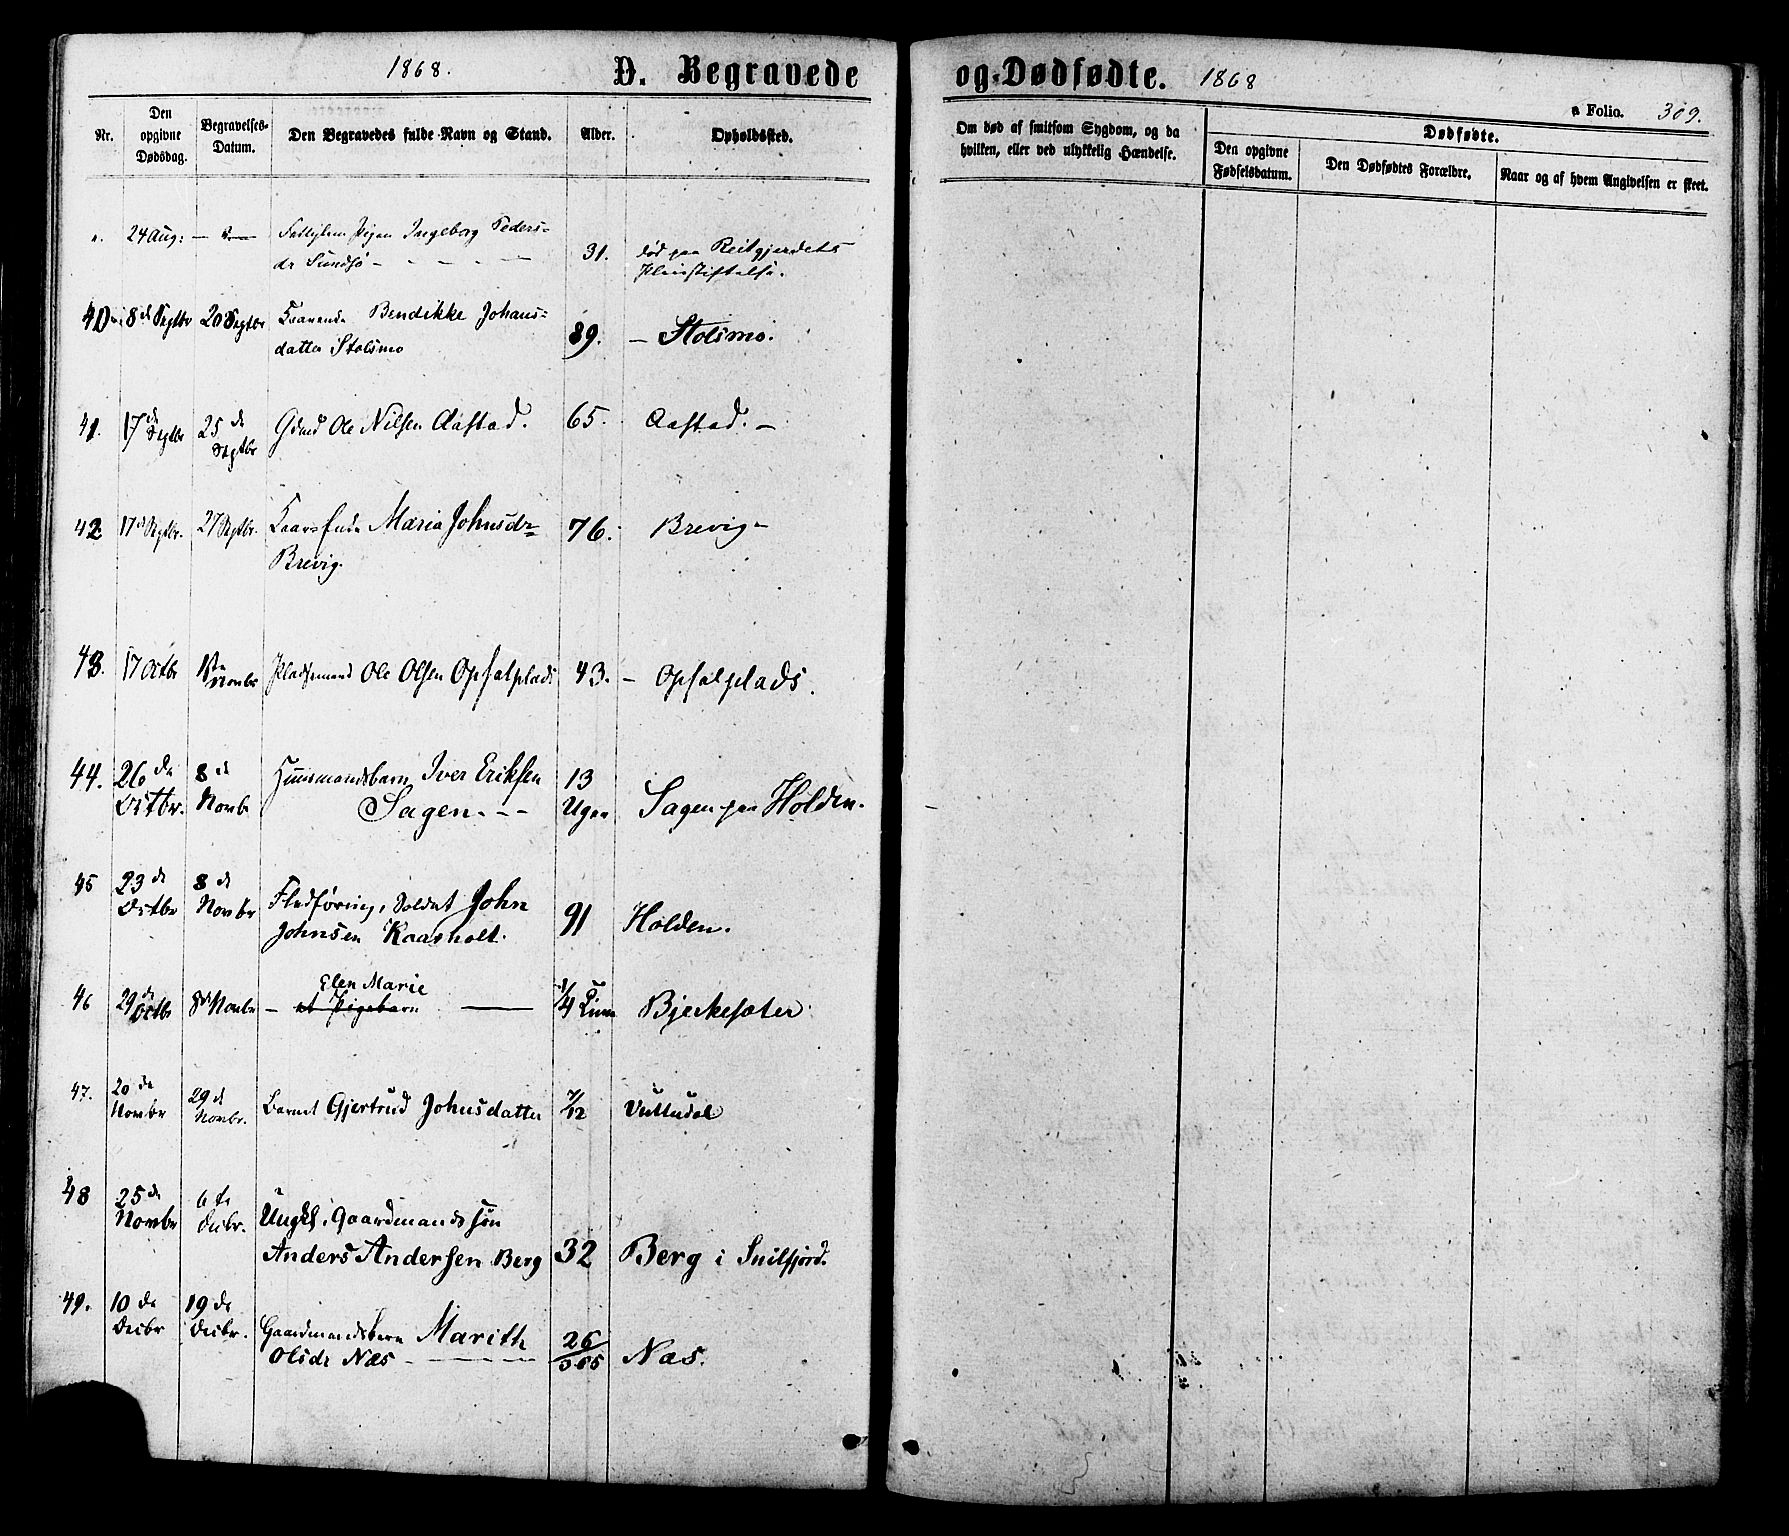 1868.
D. Begravede
og Dødfødte.
1868
a Folio. 309.
Nr.
Den opgivne Dødsdag.
Begravelses-Datum.
Den Begravedes fulde Navn og Stand.
Alder.
Opholdssted.
Om død af smitsom Sygdom, og da hvilken, eller ved ulykkelig Hændelse.
Dødfødte.
Den opgivne Fødselsdatum.
Den Dødfødtes Forældre.
Naar og af hvem Angivelsen er skeet.
24 Aug: Pigen Ingeborg Peders-
dr Sundsø 31. død paa Reitgjerdets
Pleiestiftelse.
40 8de Septbr 20 Septbr Bendikke Johans-
datter Stolsmo 89. Stolsmo.
41. 17de Septbr 25de Septbr Gdmd Ole Nilsen Aastad. 65. Aastad.
42 17de Septbr. 27 Septbr. Maria Johnsdr 76. Brevig
Brevig.
43. 17 Octbr 1ste Novbr Pladsemand Ole Olsen Opsalplads 43. Opsalplads.
44. 26de Octbr. 8de Novbr Huusmandsbarn Iver Eriksen 13
Sagen Uger Sagen paa Holden.
45 23de Octbr 8de Novbr Fledføring, Soldat John
Johnsen Kaasholt. 91 Holden.
Elen Marie
46 29de Octbr 8de Novbr et Pigebarn 1/4 Time Bjerkesæter
47. 20de Novbr 29de Novbr. Barnet Gjertrud Johnsdatter 7/12 Vuttudal
48 25de Novbr 6te Decbr. Ungkl. Gaardmandssøn
Anders Andersen Berg 32 Berg i Snilfjord.
49. 10de Decbr 19de Decbr. Gaardmandsbarn Marith
Olsdr Næs 26/365 Næs.